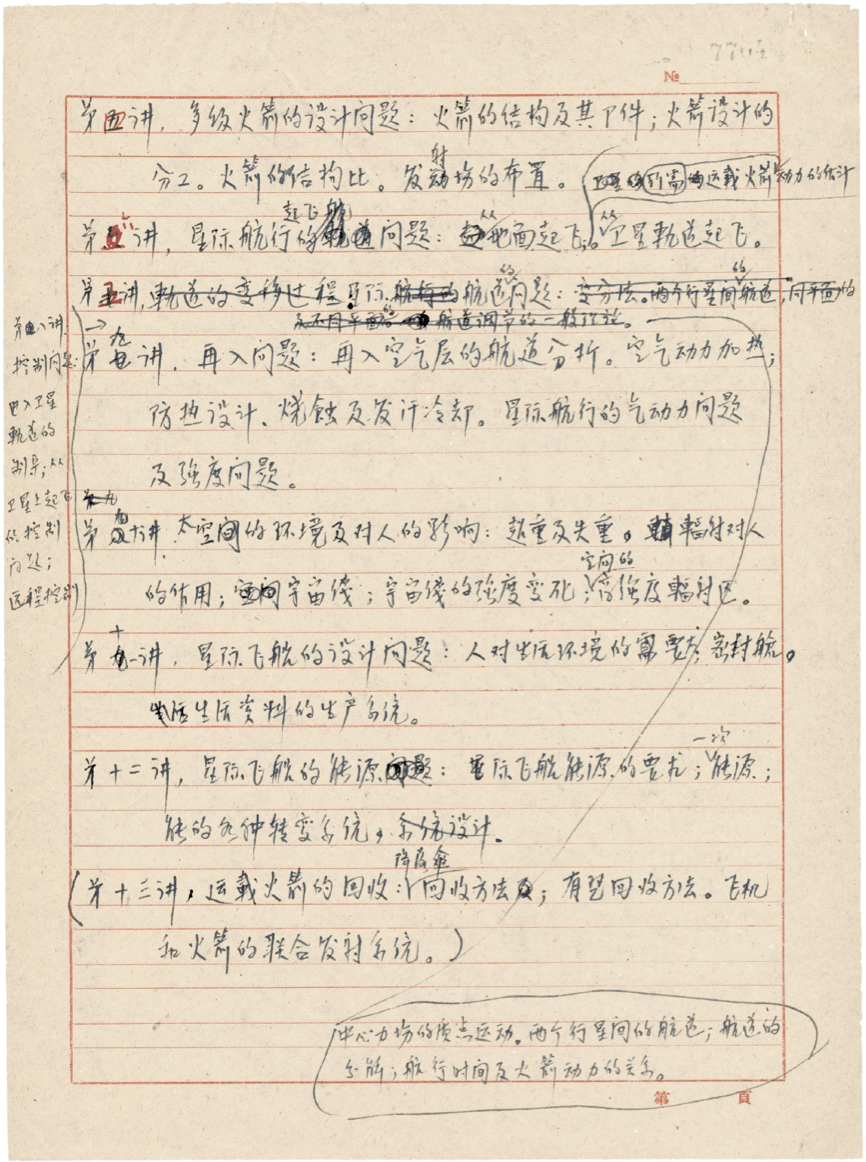 №
第四讲，多级火箭的设计问题：火箭的结构及其部件；火箭设计的
分工。火箭的结构比。发射场的布置。
运载火箭动力的估计
第五讲，星际航行的起飞航道问题：从地面起飞。从卫星軌道起飞。
第五讲，軌道的变移过程 星际航行的航道的问题：变分法。两个行星间的航道，同平面的
及不同平面的 航道调节的一般理论。
第八讲，
控制问题：
进入卫星
軌道的
制导；从
卫星上起飞
的控制
问题；
远程控制
第九讲，再入问题：再入空气层的航道分析。空气动力加热；
防热设计、烧蚀及发汗冷却。星际航行的气动力问题
及强度问题。
第九
第十讲，太空间的环境及对人的影响：超重及失重。辐射对人
的作用；宇宙线；宇宙线的强度变化；空间的高强度輻射区。
第十一讲，星际飞船的设计问题：人对生活环境的需要；密封舱。
生活资料的生产系统。
第十二讲，星际飞船的能源问题：星际飞船能源的要求；一次能源；
能的各种转变系统，系统设计。
（第十三讲，运载火箭的回收：降落伞回收方法；有翼回收方法。飞机
和火箭的联合发射系统。）
中心力场的质点运动。两个行星间的航道；航道的
分解；航行时间及火箭动力的关系。
第 頁